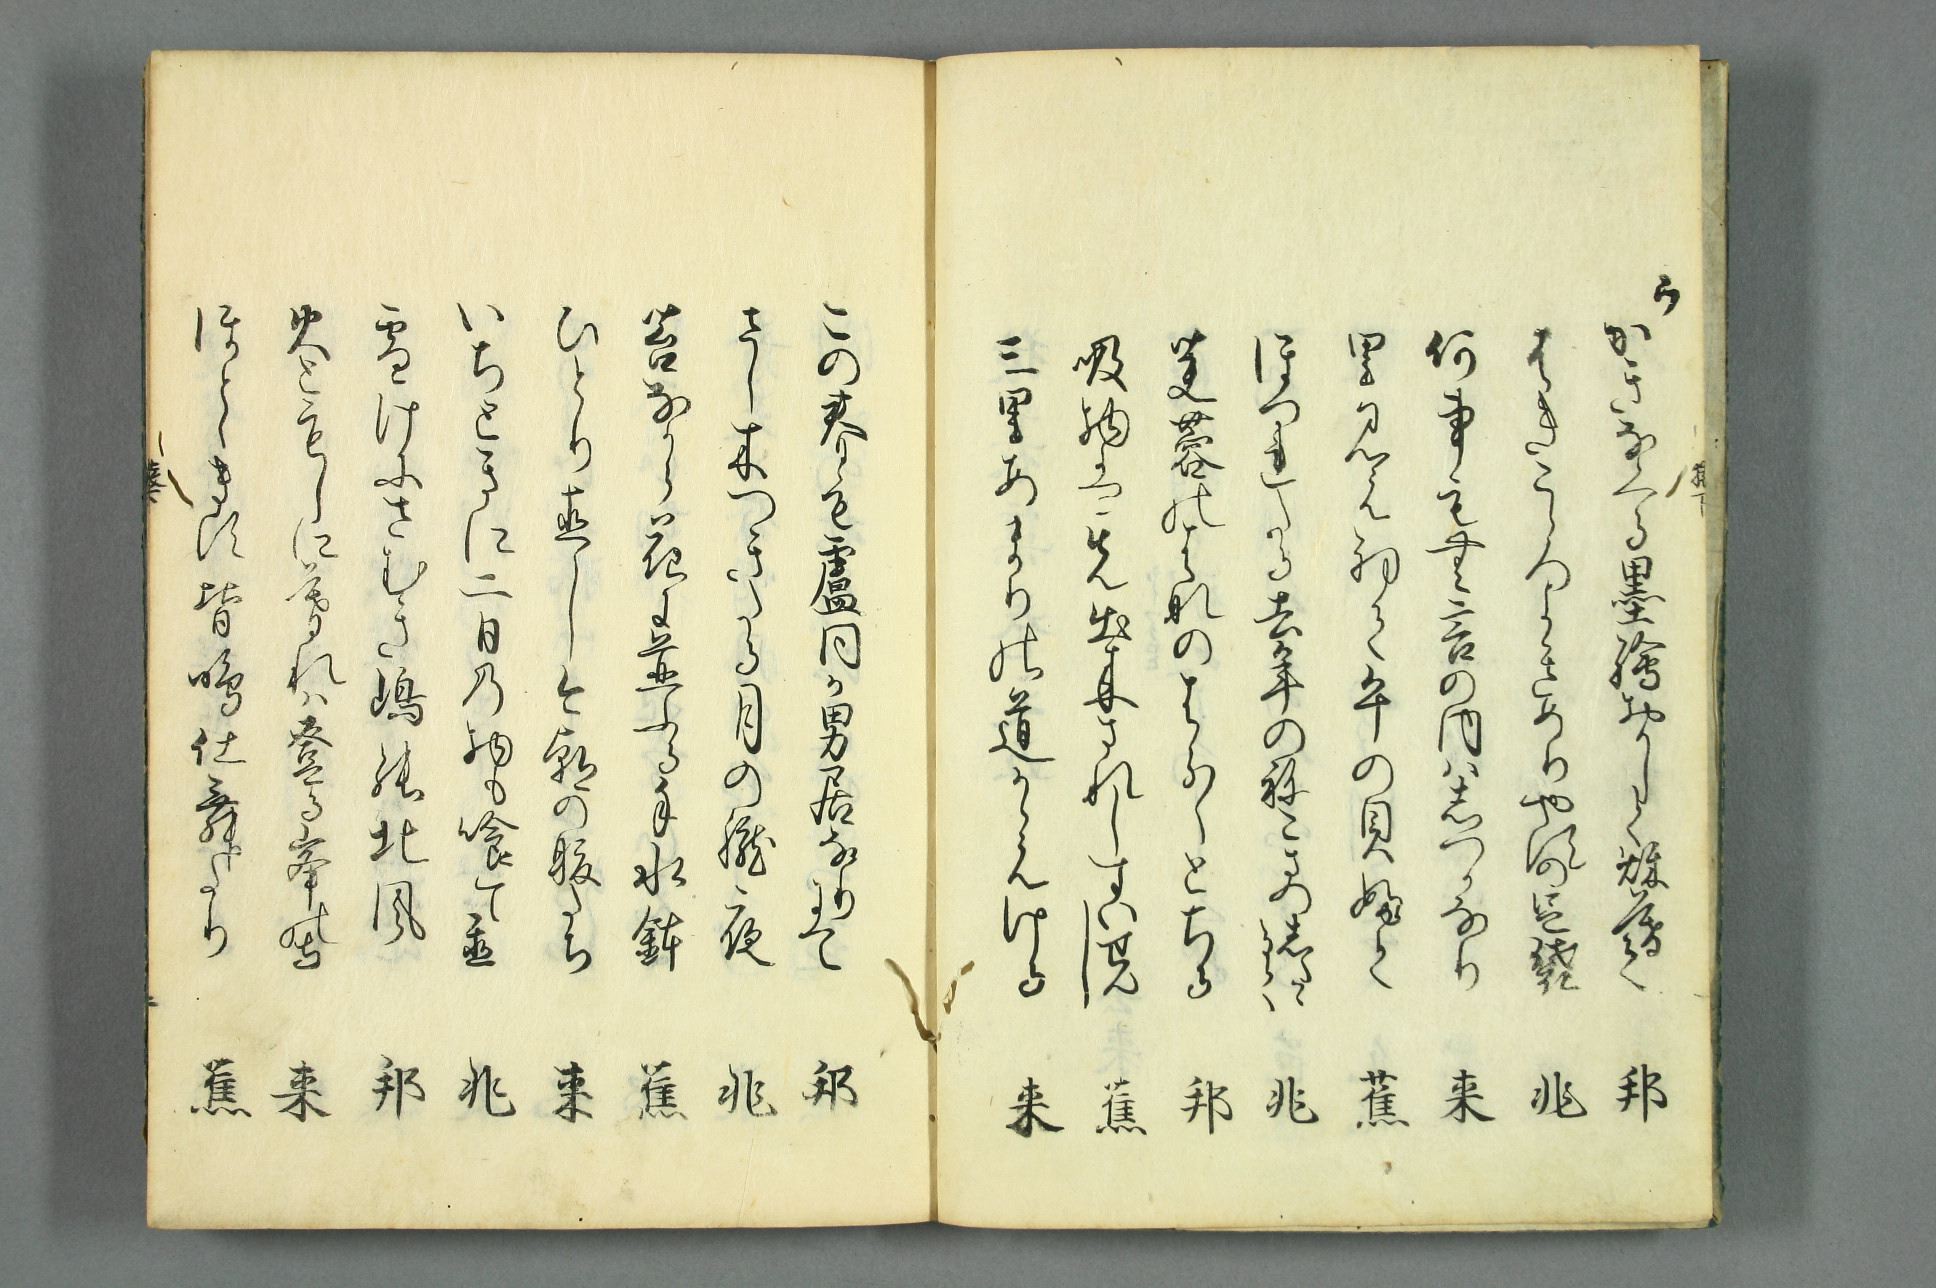 ウ
かきなくる墨繪おかしく秋暮て 邦
はきこゝろよきめりやすの足袋 兆
何事も無言の内はしつかなり 来
里見え初て午の貝ふく 蕉
ほつれたる去年のねこさのしたゝるく 兆
芙蓉のはなのはら〱とちる 邦
吸物は先出来されしすいせんし 蕉
三里あまりの道かゝえける 来
この春も盧同か男居なりにて 邦
さし木つきたる月の朧夜 兆
苔なから花に並ふる手水鉢 蕉
ひとり直し今朝の腹たち 来
いちときに二日の物も喰て置 兆
雪けにさむき嶋の北風 邦
火ともしに暮れは登る峯の寺 来
ほとゝきす皆鳴仕舞たり 蕉